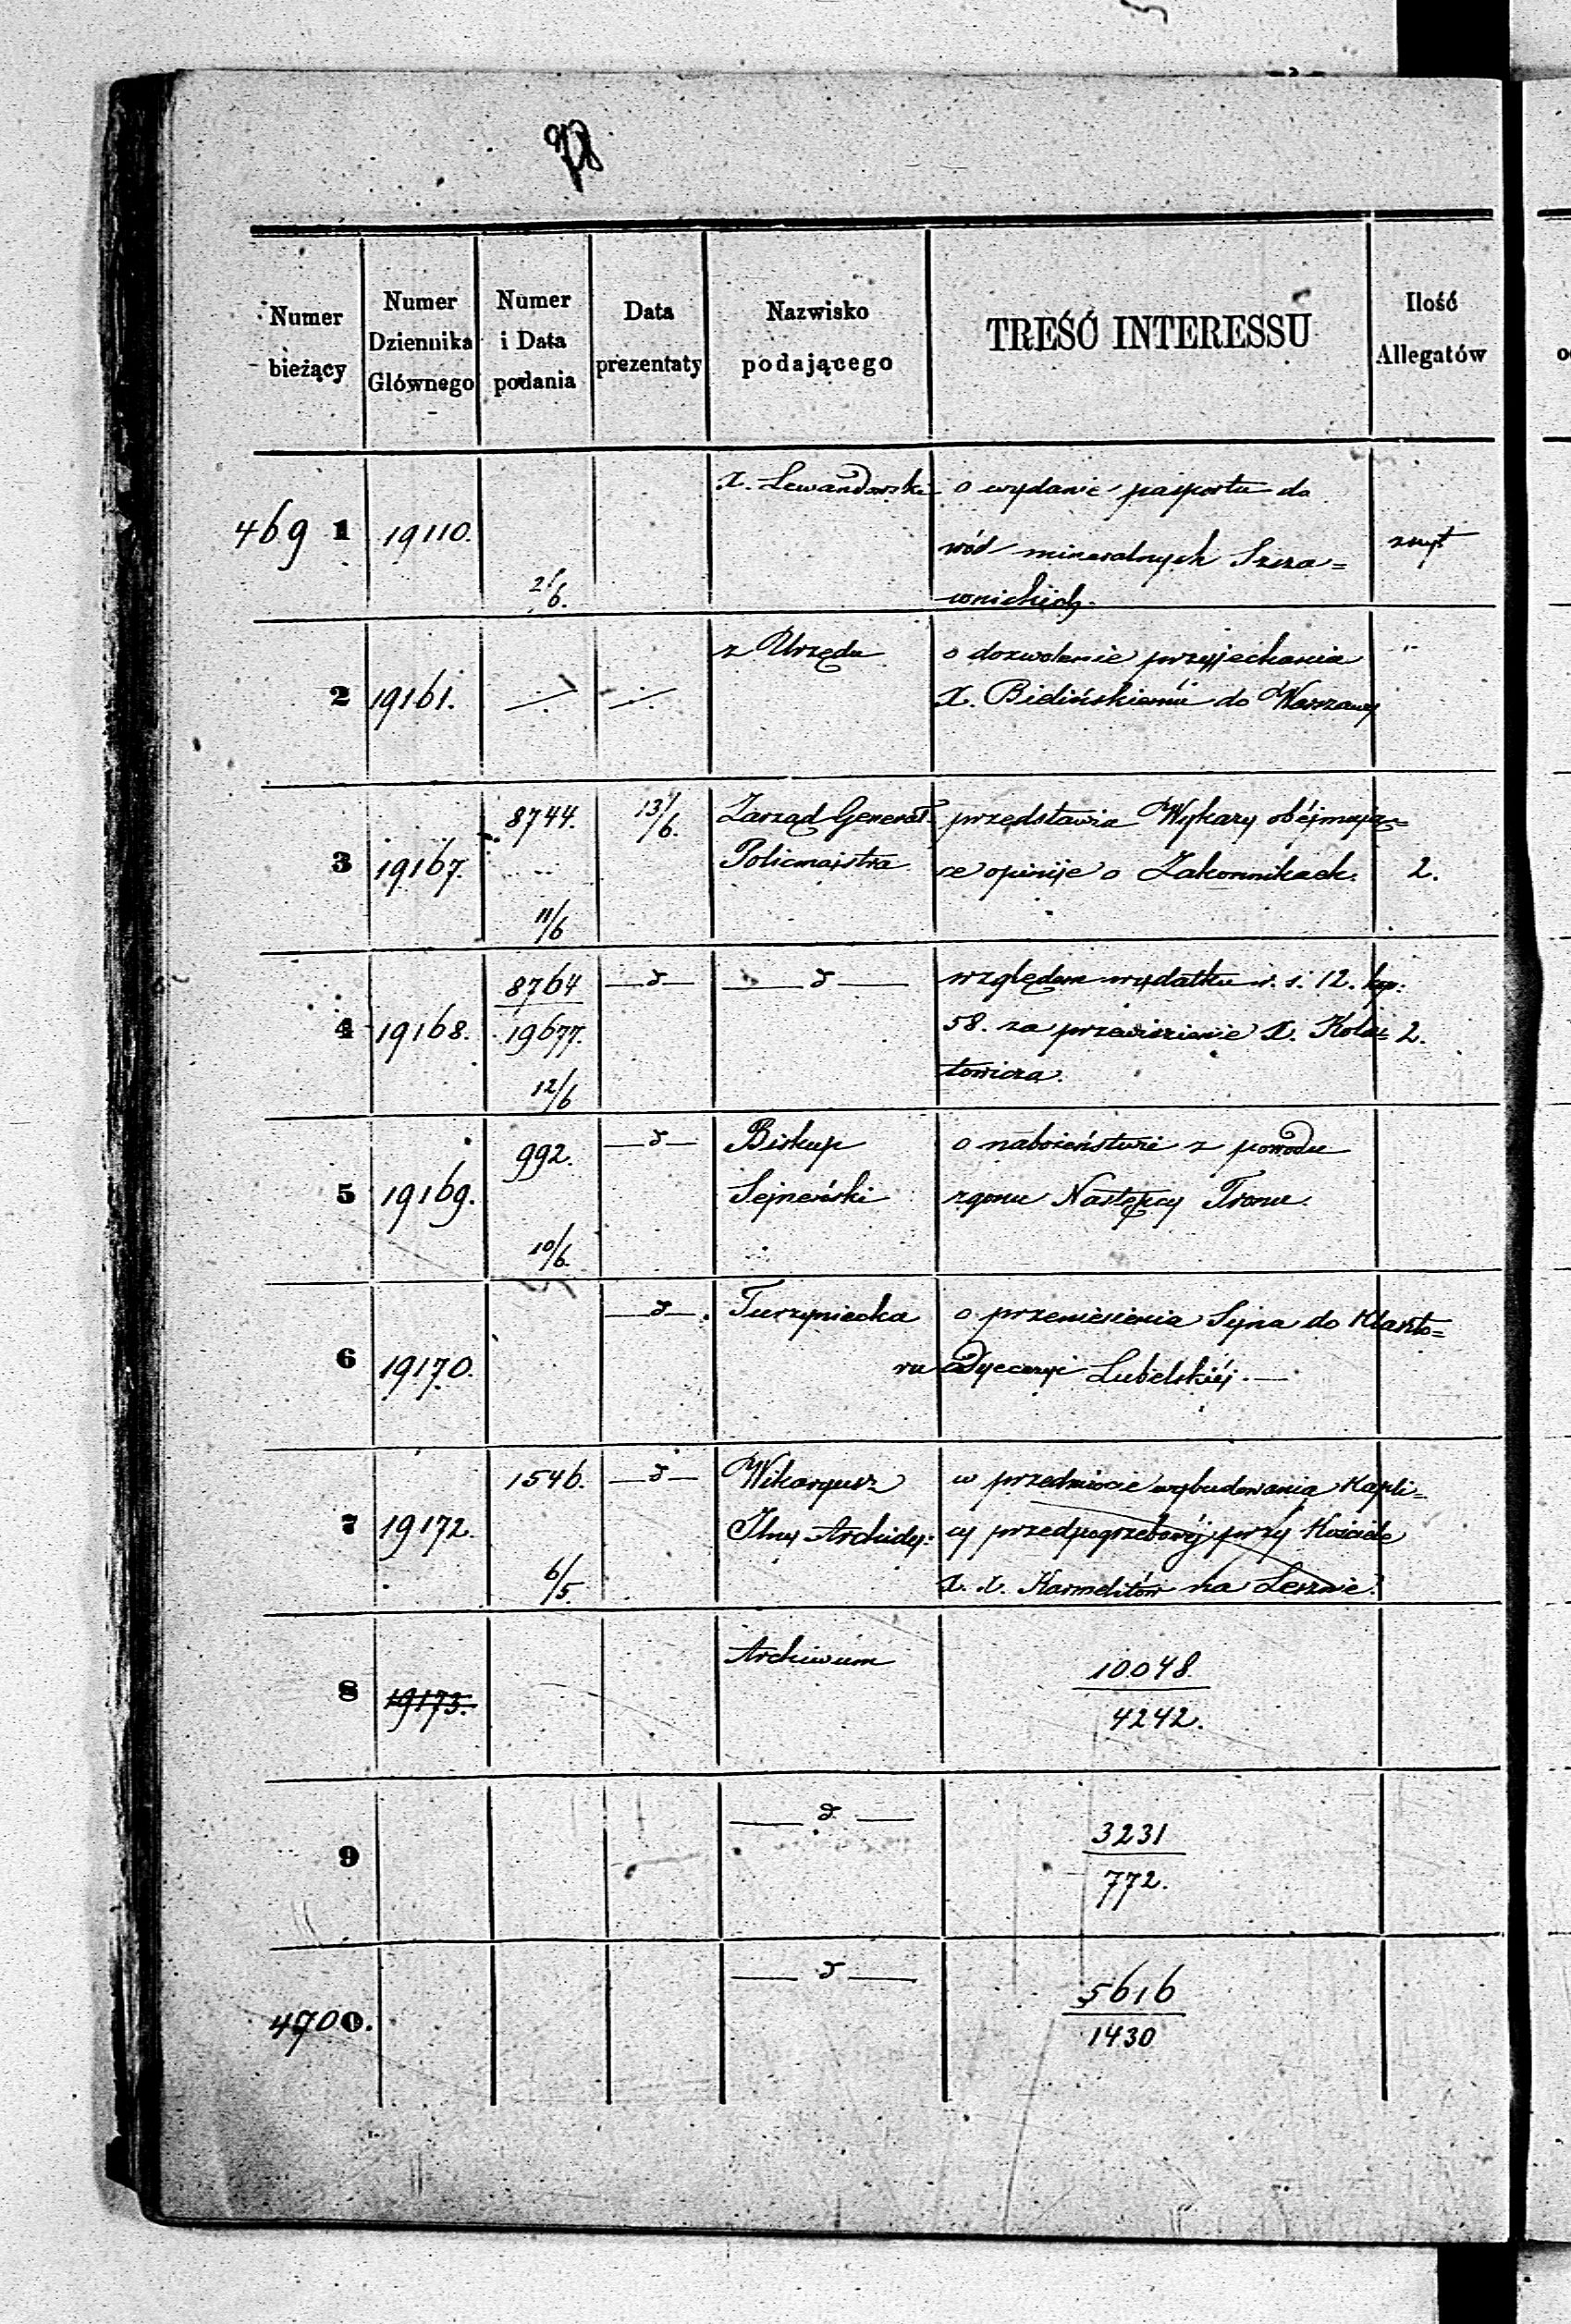 Numer bieżący
Numer Dziennika Głównego
Numer i Data podania
Data prezentaty
Nazwisko podającego
TREŚĆ INTERESSU
Ilość Allegatów
469 1
19110.
2/6.
X. Lewandowski
o wydanie paszportu do
wód mineralnych Szcza=
wnickich.
zszyt
2
19161.
z Urzędu
o dozwolenie przyjechania
X. Bielińskiemu do Warszawy
"
3
19167.
8744.
11/6
13/6.
Zarząd Generał.
Policmajstra
przedstawia Wykazy obéjmują=
ce opinije o Zakonnikach.
2.
4
19168.
8764
19677.
12/6
—d—
—d—
względem wydatku r. s. 12. kop.
58. za przewiezienie X. Kola=
towicza.
2.
5
19169.
992.
10/6.
—d—
Biskup
Sejneński
o nabożeństwie z powodu
zgonu Następcy Tronu.
6
19170.
—d—
Turzyniecka
o przeniesienia Syna do Klaszto=
ru Dyecezyi Lubelskiéj.—
7
19172.
1546.
6/5.
—d—
Wikaryusz
Jlny Archidy:
w przedmiocie wybudowania Kapli=
cy przedpogrzebowéj przy Kościele
X. X. Karmelitów na Lesznie.
8
19173.
Archiwum
10048.
4242.
9
—d—
3231
772.
4700.
—d—
5616
1430